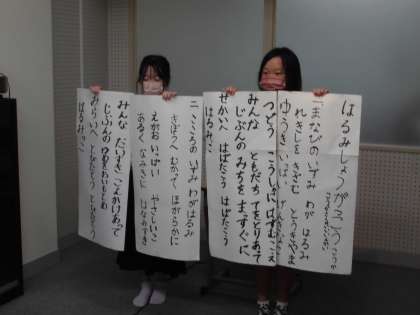 はるみしょうがっこうこうか
「まなびのいずみ わが はるみ
れきしを きざむ
ゆうき いっぱい げんきよく
つどう こうしゃに はずむこえ
みんな ともだち てをとりあって
じぶんの みちを まっすぐに
せかいへ はばたこう はばたこう
はるみっこ
二 こころの いずみ わが はるみ
きぼうへ むかって ほがらかに
えがお いっぱい やさしいこ
ある なみきに はなみずき
みんな だいすき こえかけあって
じぶんの ゆめを おいもとめ
みらいへ とびたとう とびたとう
はるみっこ